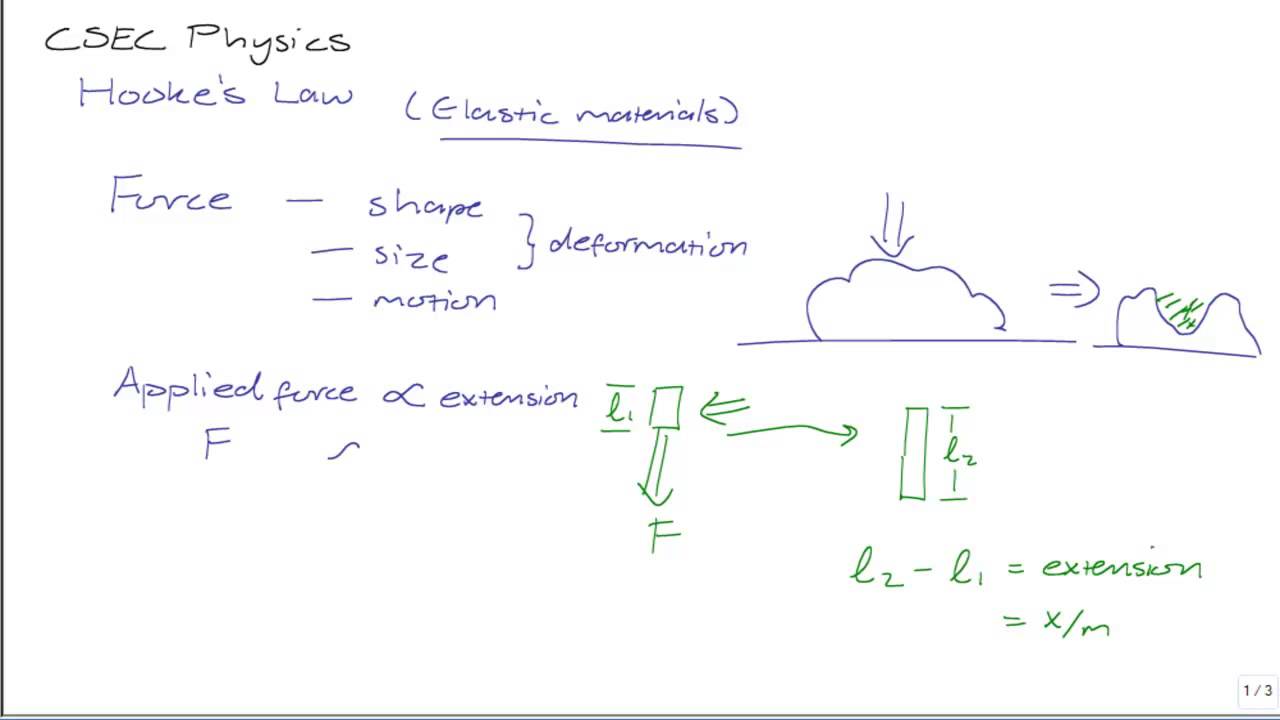 CSEC Physics
Hooke's Law (Elastic materials)
Force — shape
— size } deformation
— motion
Applied force ∝ extension
F
l₁
F
l₂
l₂ - l₁ = extension
= x/m
1 / 3